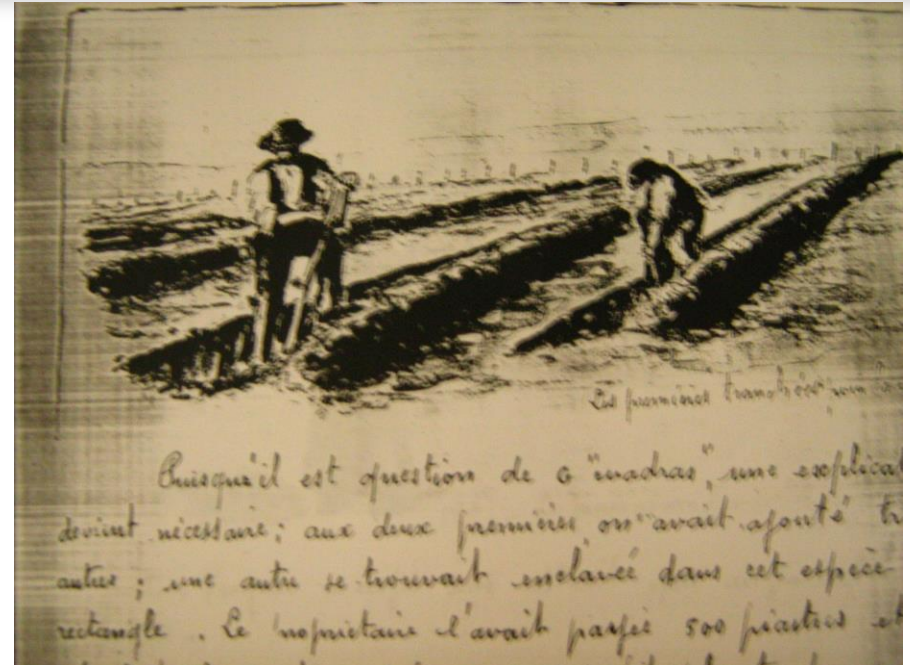 Les premières tranchées
Puisqu'il est question de 6 "madras", une explicat
devient nécessaire ; aux deux premières on avait ajouté tr
autres ; une autre se trouvait enclavée dans cet espèce
rectangle . Le propriétaire l'avait payée 500 piastres et